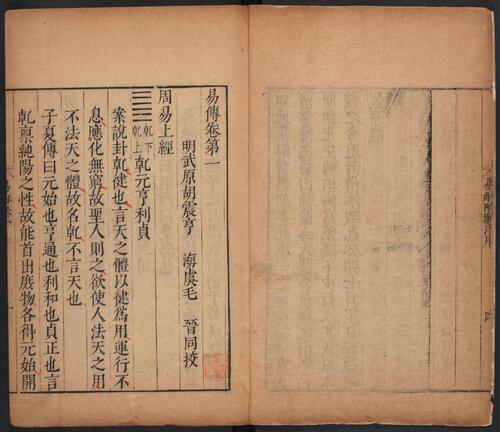 易傳卷第一
明武原胡震亨 海虞毛 晉同挍
周易上經
乾下乾上乾元亨利貞
案說卦乾健也言天之體以健爲用運行不
息應化無窮故聖人則之欲使人法天之用
不法天之體故名乾不言天也
子夏傳曰元始也亨通也利和也貞正也言
乾稟純陽之性故能首出庶物各得元始開